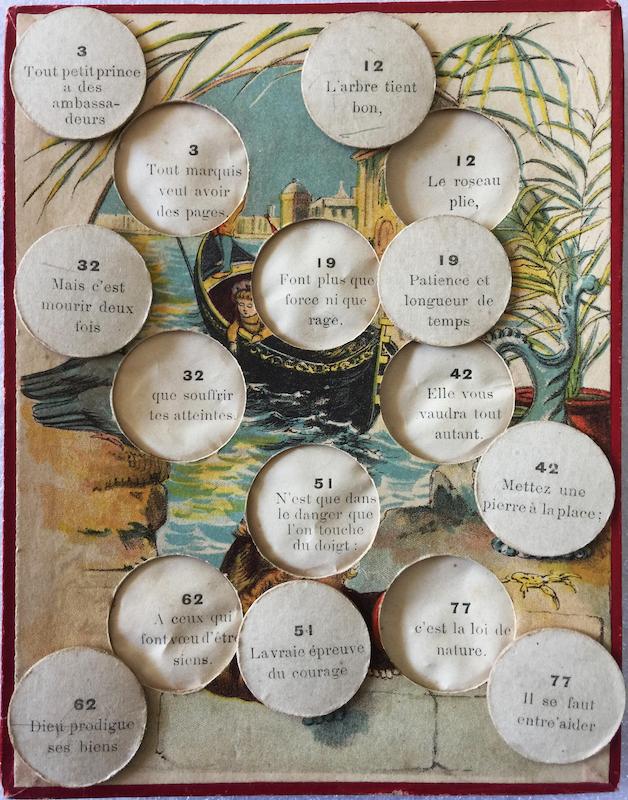 3
Tout petit prince
a des
ambassa-
deurs
12
L'arbre tient
bon,
3
Tout marquis
veut avoir
des pages.
12
Le roseau
plie,
32
Mais c'est
mourir deux
fois
19
Font plus que
force ni que
rage.
19
Patience et
longueur de
temps
32
que souffrir
tes atteintes.
42
Elle vous
vaudra tout
autant.
42
Mettez une
pierre à la place;
51
N'est que dans
le danger que
l'on touche
du doigt:
62
A ceux qui
font vœu d'être
siens.
51
La vraie épreuve
du courage
77
c'est la loi de
nature.
62
Dieu prodigue
ses biens
77
Il se faut
entre'aider